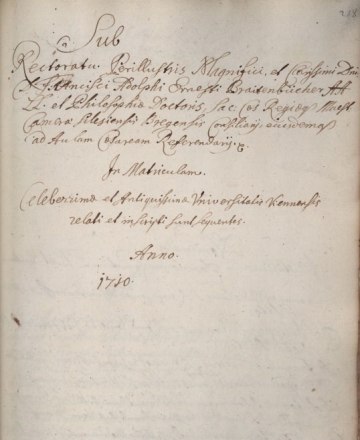 218
Sub
Rectoratu Perillustris Magnifici, et Clarissimi Dni
Francisci Adolphi Ernesti Braitenbücher AA
LL. et Philosophiæ Doctoris, Sac. Cæs Regiæq Maest
Cameræ Silesiensis Bregensis Consiliarij, eiusdemq
ad Aulam Cæsaream Referendarij.
In Matriculam
Celeberrimæ et Antiquissimæ Universitatis Viennensis
relati et inscripti sunt sequentes
Anno.
1710.